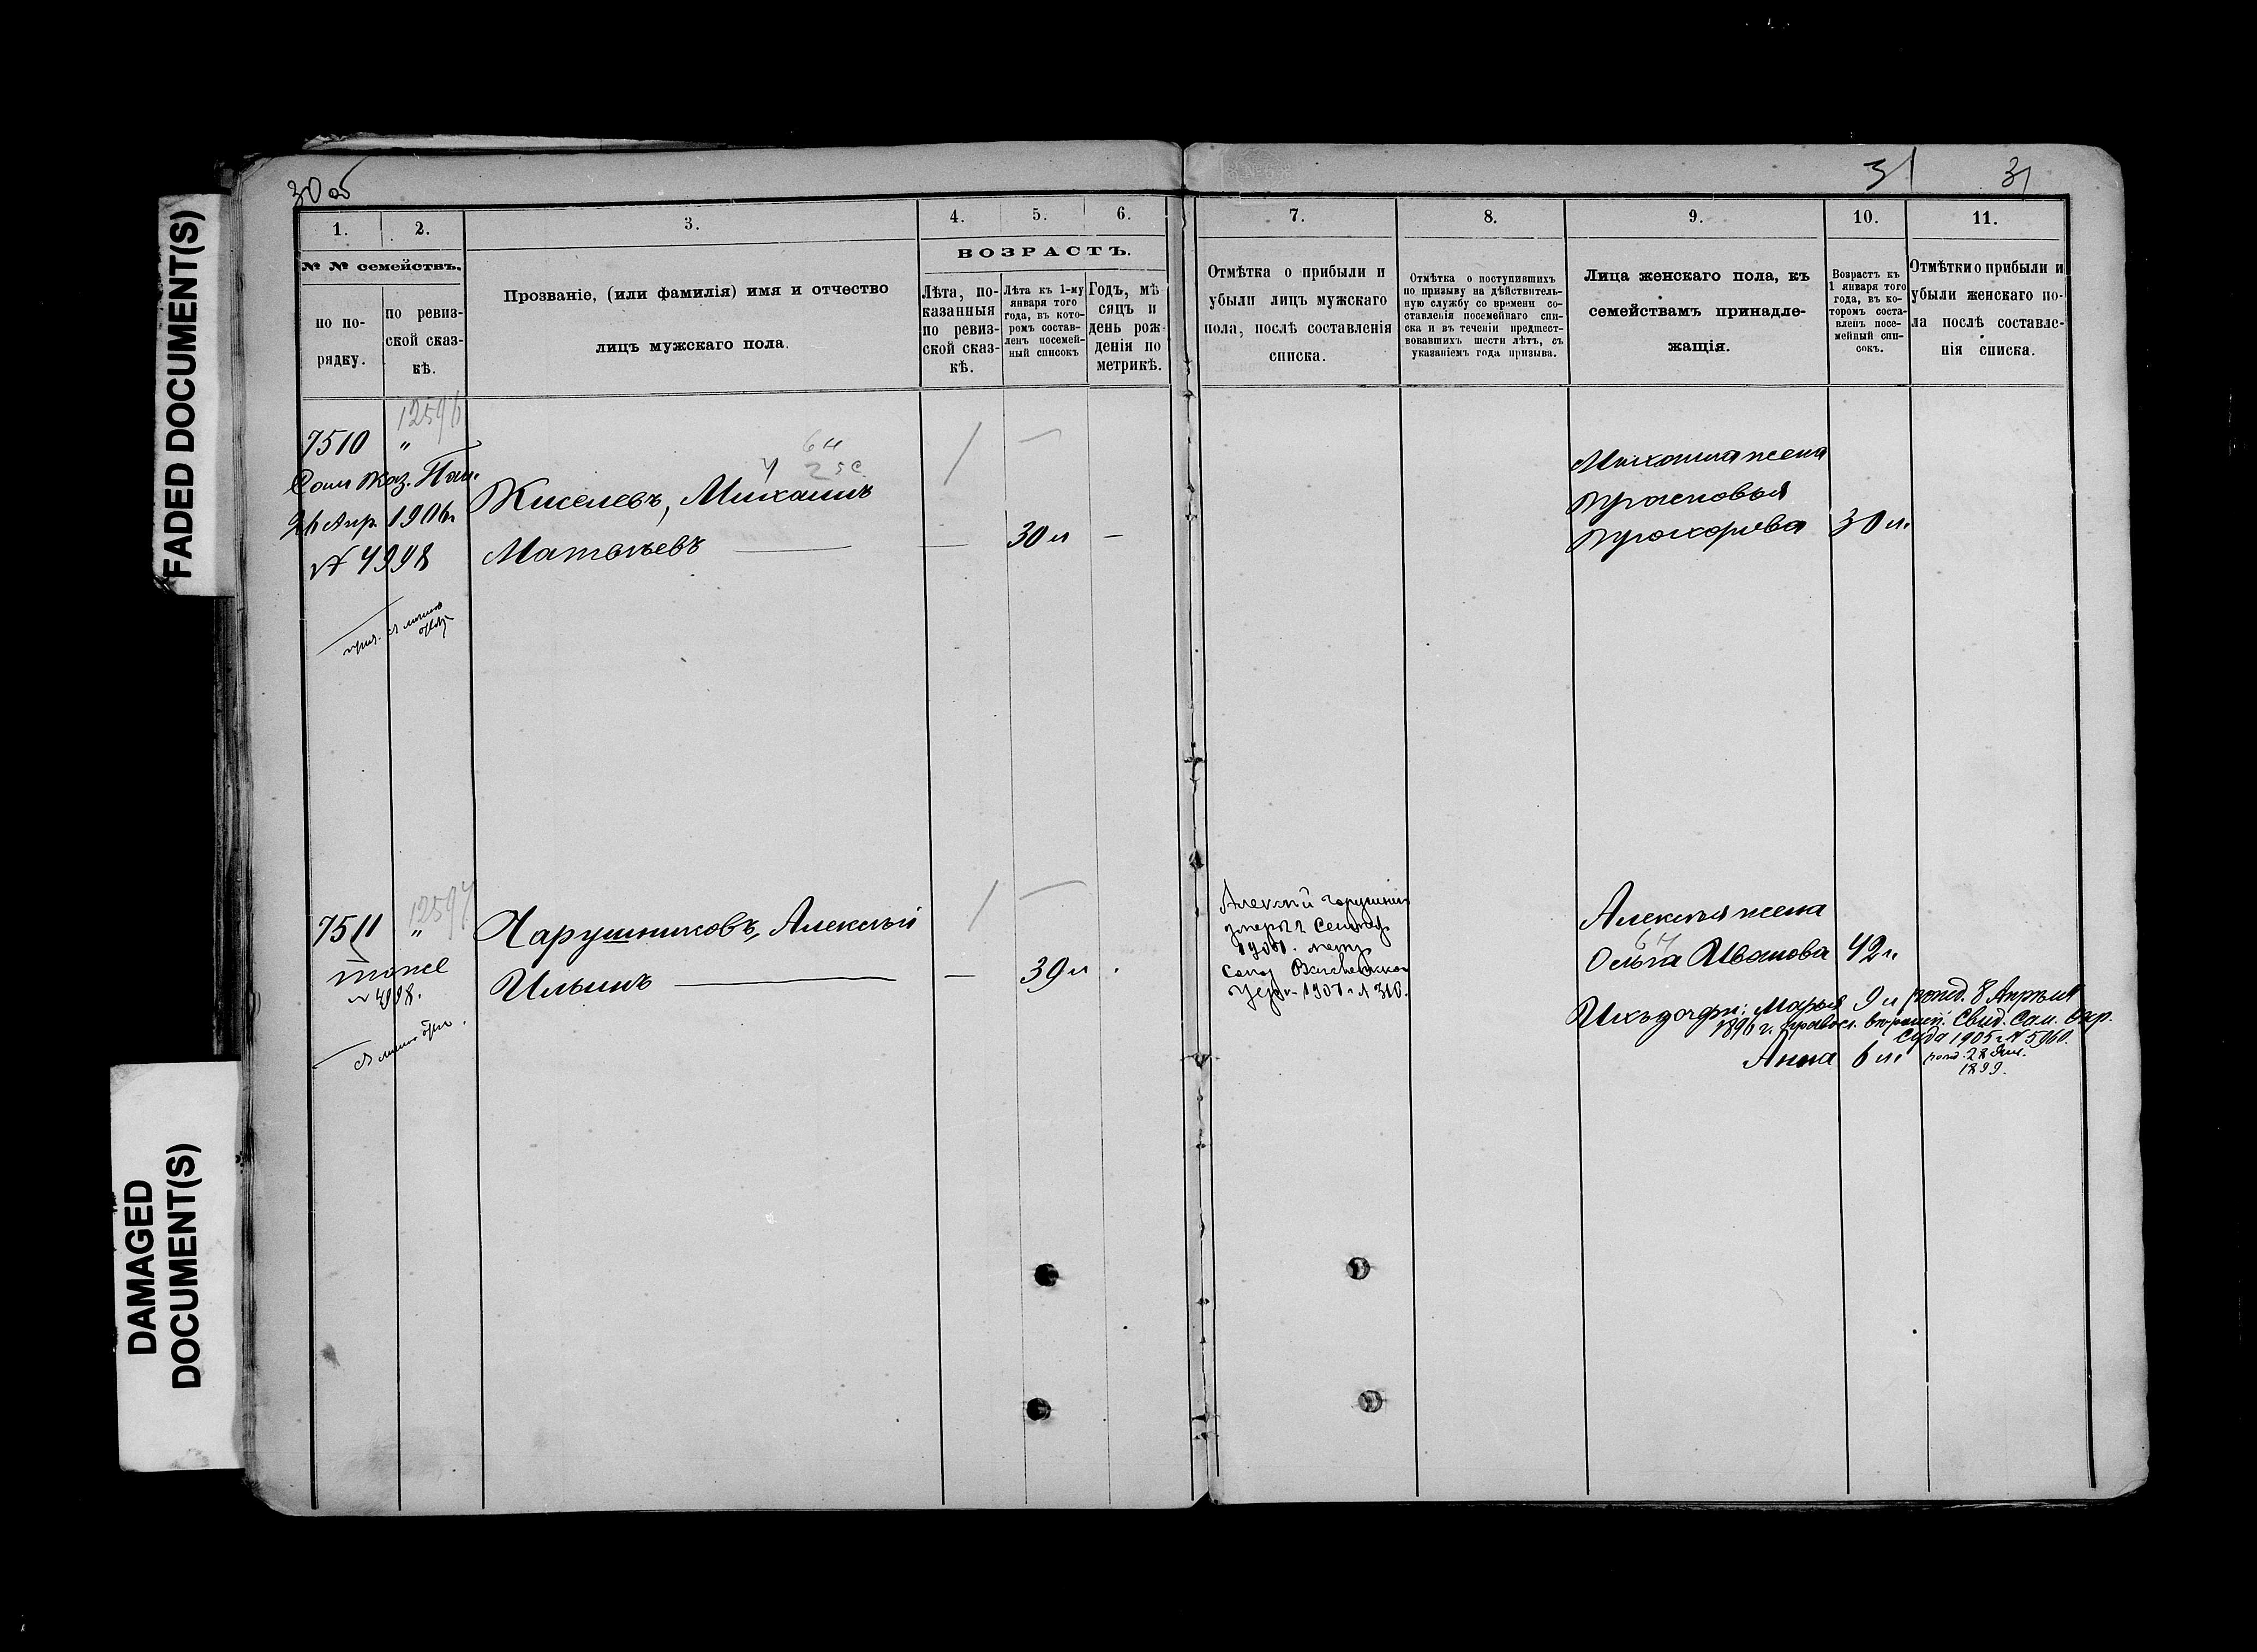 FADED DOCUMENT(S)
DAMAGED
DOCUMENT(S)
30 об
1.
2.
3.
4.
5.
6.
№ № семействъ.
по по-
рядку.
по ревиз-
ской сказ-
кѣ.
Прозваніе, (или фамилія) имя и отчество
лицъ мужскаго пола.
ВОЗРАСТЪ.
Лѣта, по-
казанныя
по ревиз-
ской сказ-
кѣ.
Лѣта къ 1-му
января того
года, въ кото-
ромъ состав-
ленъ посемей-
ный списокъ
Годъ, мѣ
сяцъ и
день рож-
денія по
метрикѣ.
12596
7510 "
Сам. Каз. Пал.
24 Апр. 1906 г
№ 4998
Киселевъ, Михаилъ
Матвѣевъ — — 30 л —
12597
7511 "
тоже
№ 4998.
Чарушниковъ, Алексѣй
Ильинъ — — 39 л
31 31
7.
8.
9.
10.
11.
Отмѣтка о прибыли и
убыли лицъ мужскаго
пола, послѣ составленія
списка.
Отмѣтка о поступившихъ
по призыву на дѣйствитель-
ную службу со времени со-
ставленія посемейнаго спи-
ска и въ теченіи предшест-
вовавшихъ шести лѣтъ, съ
указаніемъ года призыва.
Лица женскаго пола, къ
семействамъ принадле-
жащія.
Возрастъ къ
1 января того
года, въ ко-
торомъ соста-
вленъ посе-
мейный спи-
сокъ.
Отмѣтки о прибыли и
убыли женскаго по-
ла послѣ составле-
нія списка.
Михаила жена
Прасковья
Прохорова 30 л.
Алексѣй Чарушник
умеръ 2 Сентяб
1901. метр
1901 г. № 310.
Алексѣя жена
Ольга Иванова 42 г.
Ихъ дочери: Марья 9 л рожд. 8 Апрѣля
1896 г. правосл. вѣроисп. Свид. Сам. Окр.
Суда 1905 г. № 5960.
Анна 6 л. рожд. 28 Янв.
1899.